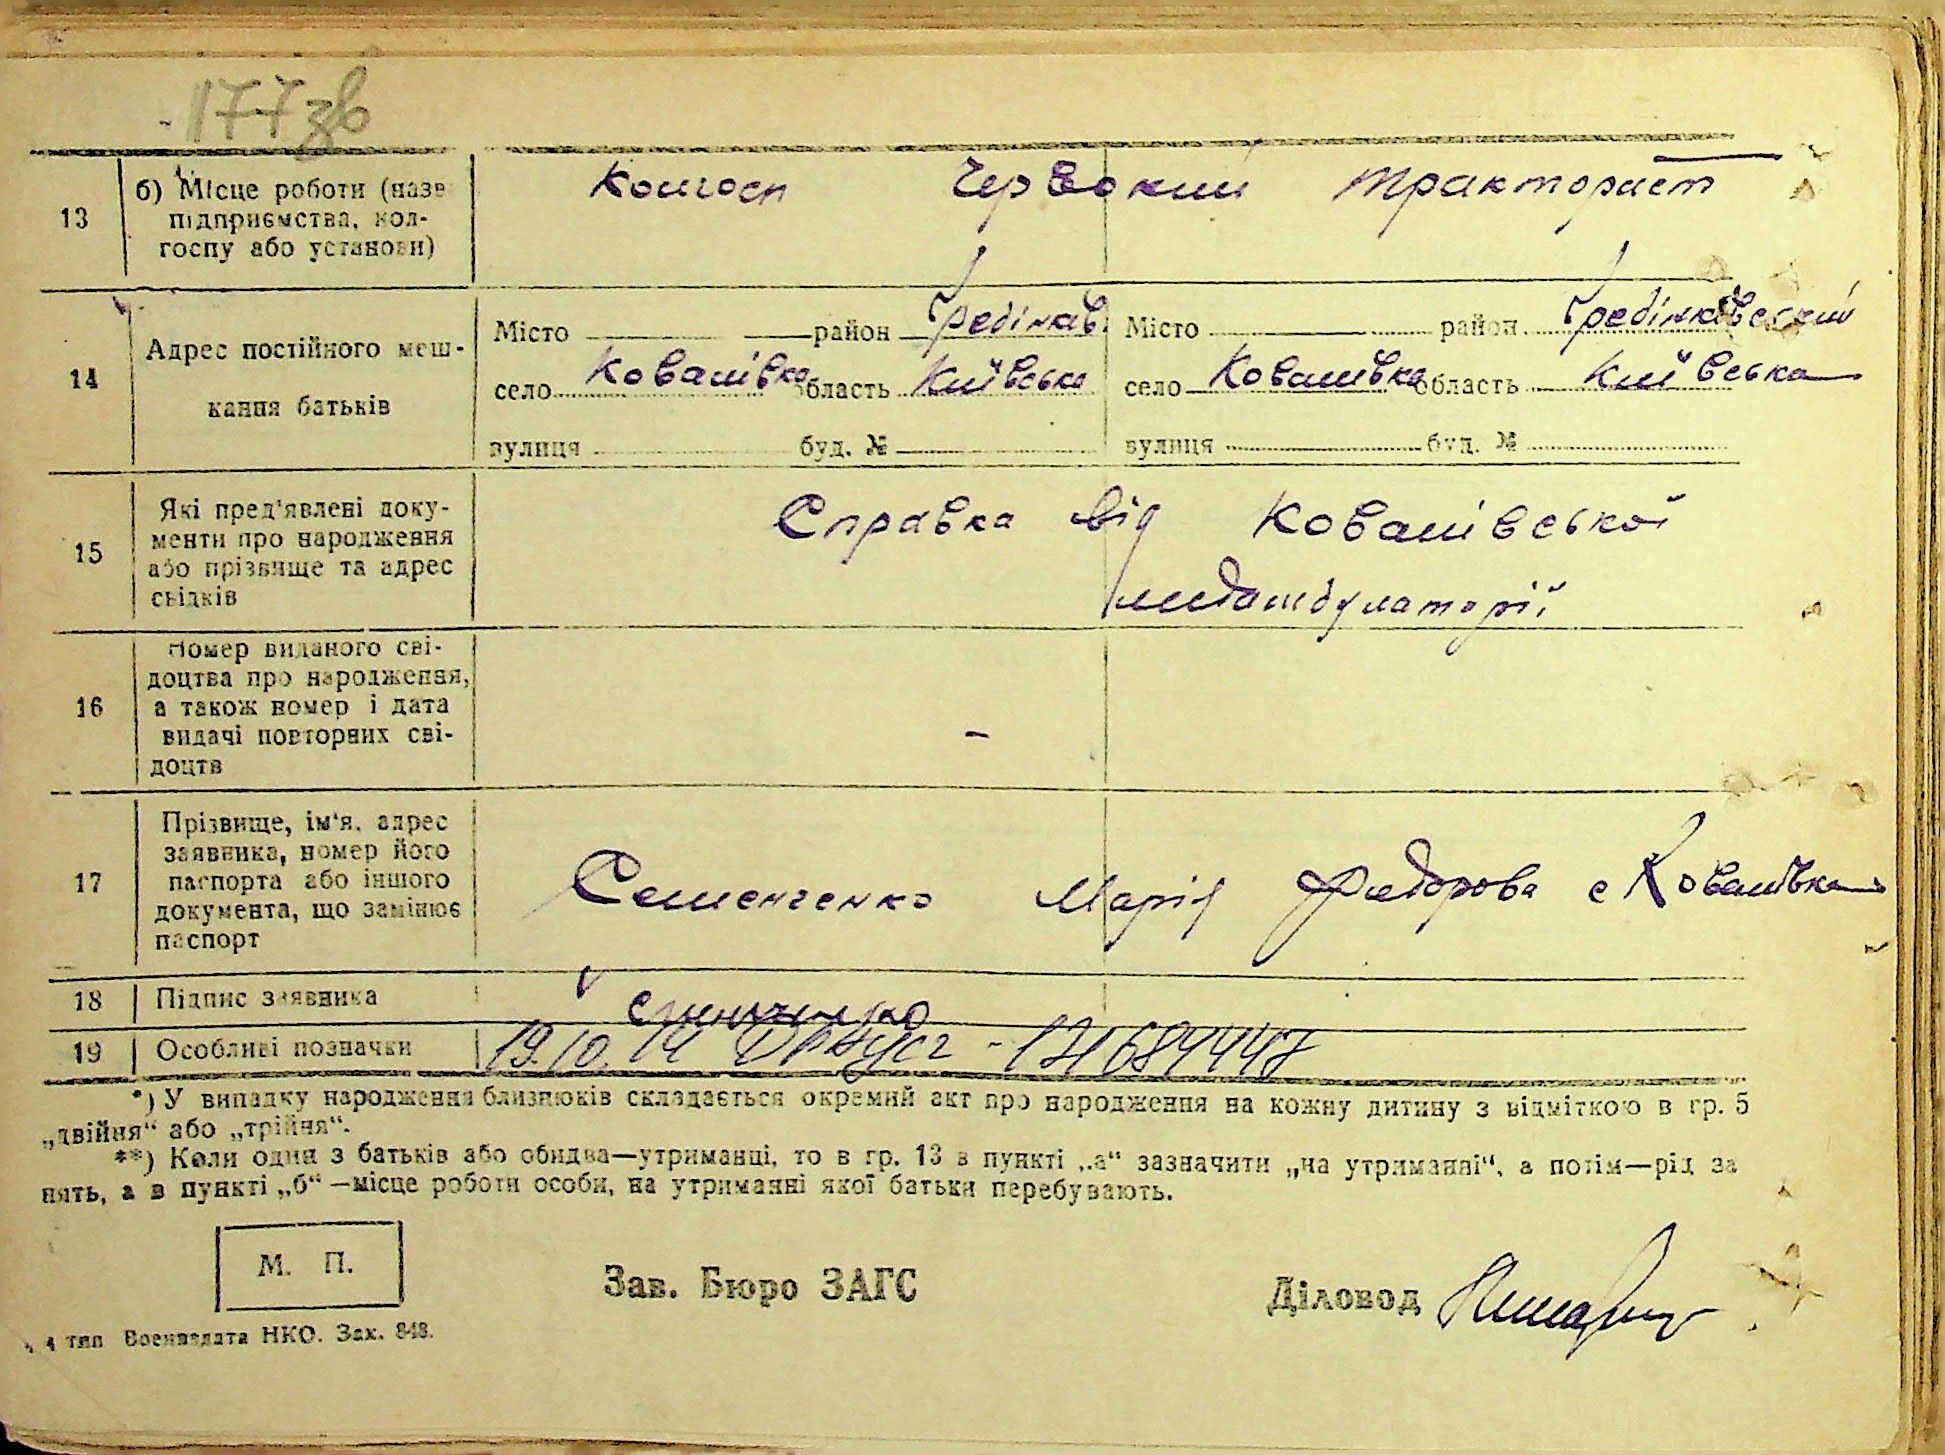 177 зв
13 б) Місце роботи (назв Колгосп Червоний тракторист
підприємства, кол-
госпу або установи)
14 Адрес постійного меш-
кання батьків
Місто район Гребінків. Місто район Гребінківський
село Ковалівка область Київська село Ковалівка область Київська
вулиця буд. № вулиця буд. №
15 Які пред'явлені доку-
менти про народження
або прізвище та адрес
свідків
Справка від Ковалівської
медамбулаторії
16 Номер виданого сві-
доцтва про народження,
а також номер і дата
видачі повторних сві-
доцтв
-
17 Прізвище, ім'я, адрес
заявника, номер його
паспорта або іншого
документа, що замінює
паспорт
Семенченко Марія Федорова с Ковалівка
18 Підпис заявника
19 Особливі позначки 19.10.
*) У випадку народження близнюків складається окремий акт про народження на кожну дитину з відміткою в гр. 5
„двійня“ або „трійня“.
**) Коли один з батьків або обидва—утриманці, то в гр. 13 в пункті „а“ зазначити „на утриманні“, а потім—рід за
нять, а в пункті „б“—місце роботи особи, на утриманні якої батьки перебувають.
М. П.
Зав. Бюро ЗАГС Діловод
4 тип Воениздата НКО. Зак. 848.